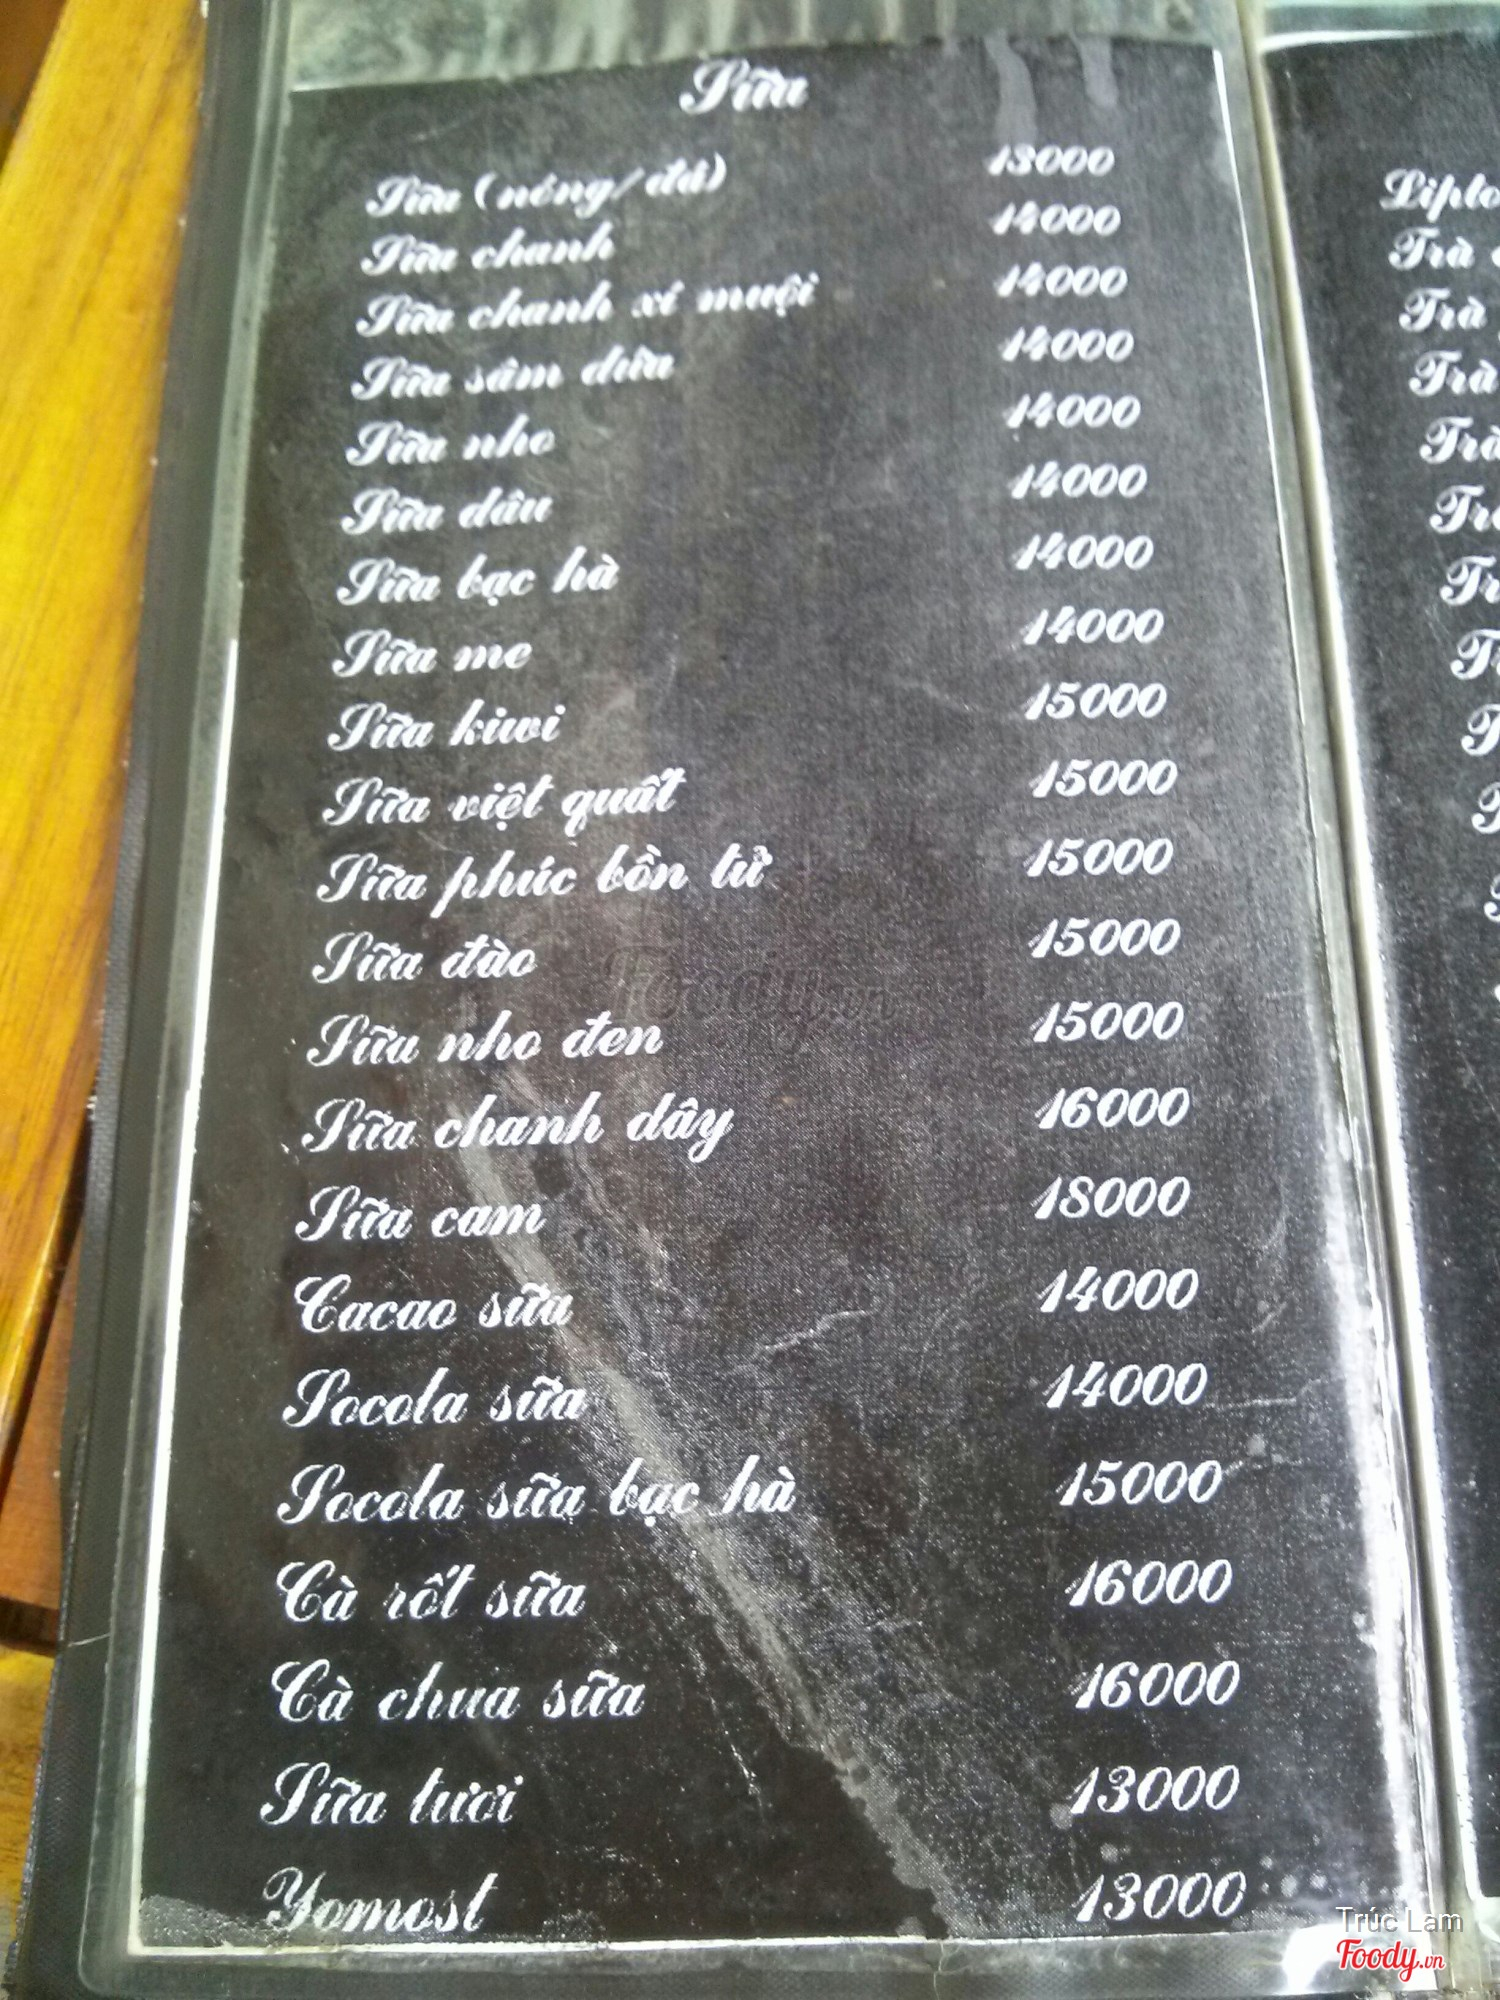 Sữa
Sữa (nóng/đá) 13000
Sữa chanh 14000
Sữa chanh xí muội 14000
Sữa sâm dứa 14000
Sữa nho 14000
Sữa dâu 14000
Sữa bạc hà 14000
Sữa me 14000
Sữa kiwi 15000
Sữa việt quất 15000
Sữa phúc bồn tử 15000
Sữa đào 15000
Sữa nho đen 15000
Sữa chanh dây 16000
Sữa cam 18000
Cacao sữa 14000
Socola sữa 14000
Socola sữa bạc hà 15000
Cà rốt sữa 16000
Cà chua sữa 16000
Sữa tươi 13000
Yomost 13000
Trà
Trà
Trà
Trà
Foody.vn
Trúc Lam
Foody.vn